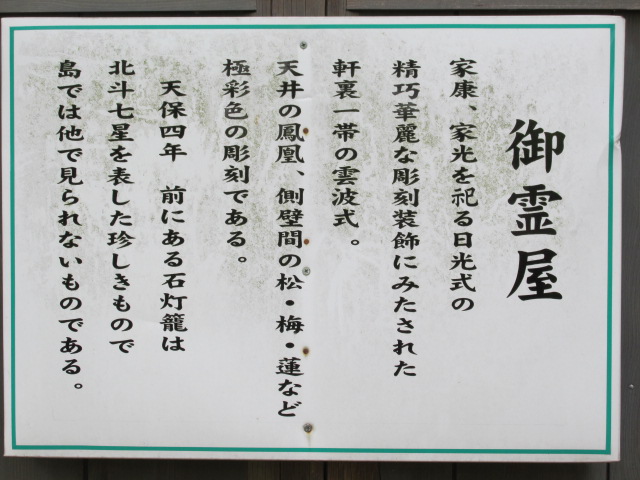 御霊屋
家康、家光を祀る日光式の
精巧華麗な彫刻装飾にみたされた
軒裏一帯の雲波式。
天井の鳳凰、側壁間の松・梅・蓮など
極彩色の彫刻である。
天保四年　前にある石灯籠は
北斗七星を表した珍しきもので
島では他で見られないものである。